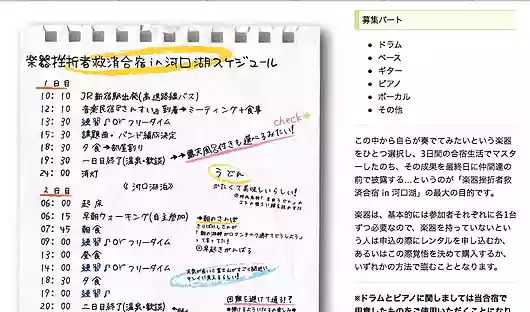 楽器挫折者救済合宿 in 河口湖スケジュール
1日目
10:10 JR新宿駅出発(高速路線バス)
12:10 音楽民宿 到着→ミーティング+食事
13:30 練習♪orフリータイム
15:30 課題曲・バンド編成決定
18:30 夕食→部屋割り
19:30 一日目終了(温泉・歓談)
24:00 消灯
check
→露天風呂付きも選べるみたい!
うどん
かたくて美味しいらしい!
《河口湖泊》
2日目
06:00 起床
06:15 早朝ウォーキング(自主参加)
07:45 朝食
09:00 練習♪orフリータイム
13:00 昼食
14:00 練習♪orフリータイム
18:30 夕食
19:00 練習♪
20:00 二日目終了(温泉・歓談)
→朝のさんぽ
天気が良いと富士山が
キレイに見えるらしい!
募集パート
ドラム
ベース
ギター
ピアノ
ボーカル
その他
この中から自らが奏でてみたいという楽器
をひとつ選択し、3日間の合宿生活でマスタ
ーしたのち、その成果を最終日に仲間達の
前で披露する…というのが「楽器挫折者救
済合宿 in 河口湖」の最大の目的です。
楽器は、基本的には参加者それぞれに各1台
ずつ必要なので、楽器を持っていないとい
う人は申込の際にレンタルを申し込むか、
あるいはこの際覚悟を決めて購入するか、
いずれかの方法で臨むこととなります。
※ドラムとピアノに関しましては当合宿で
用意したものをご使用いただくことになり